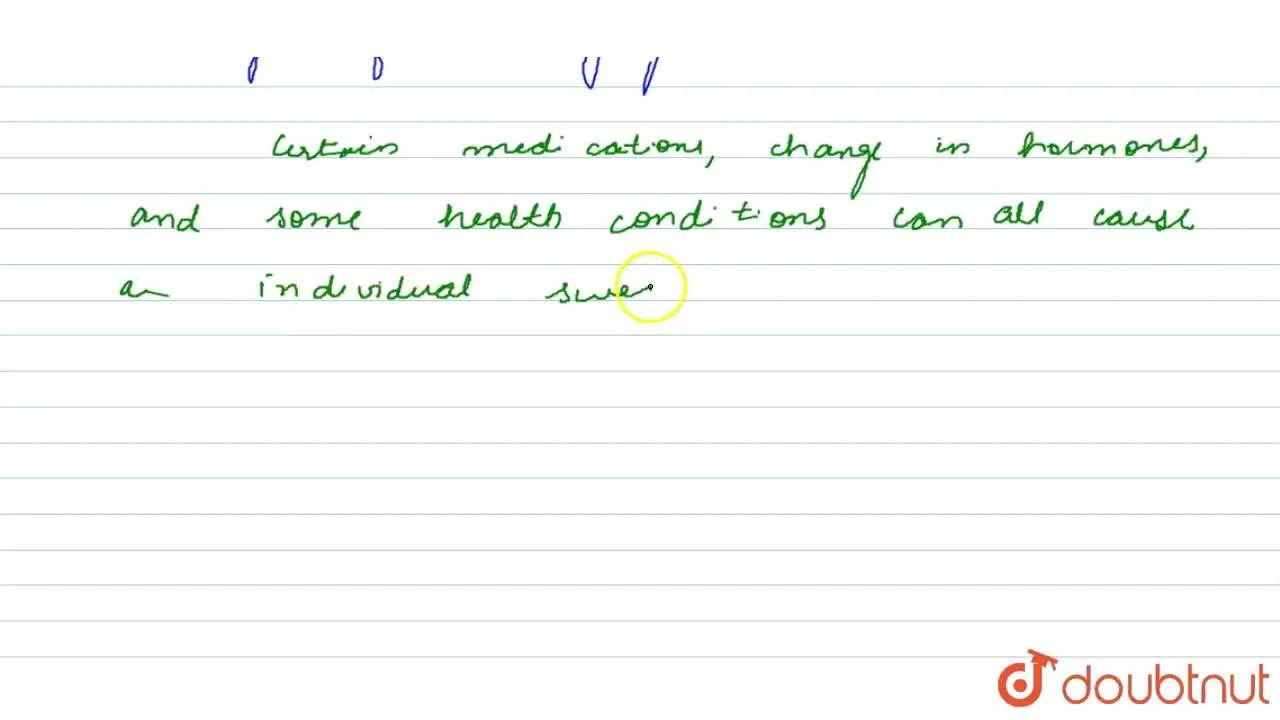 Certain medications, change in hormones,
and some health conditions can all cause
an individual swe
doubtnut